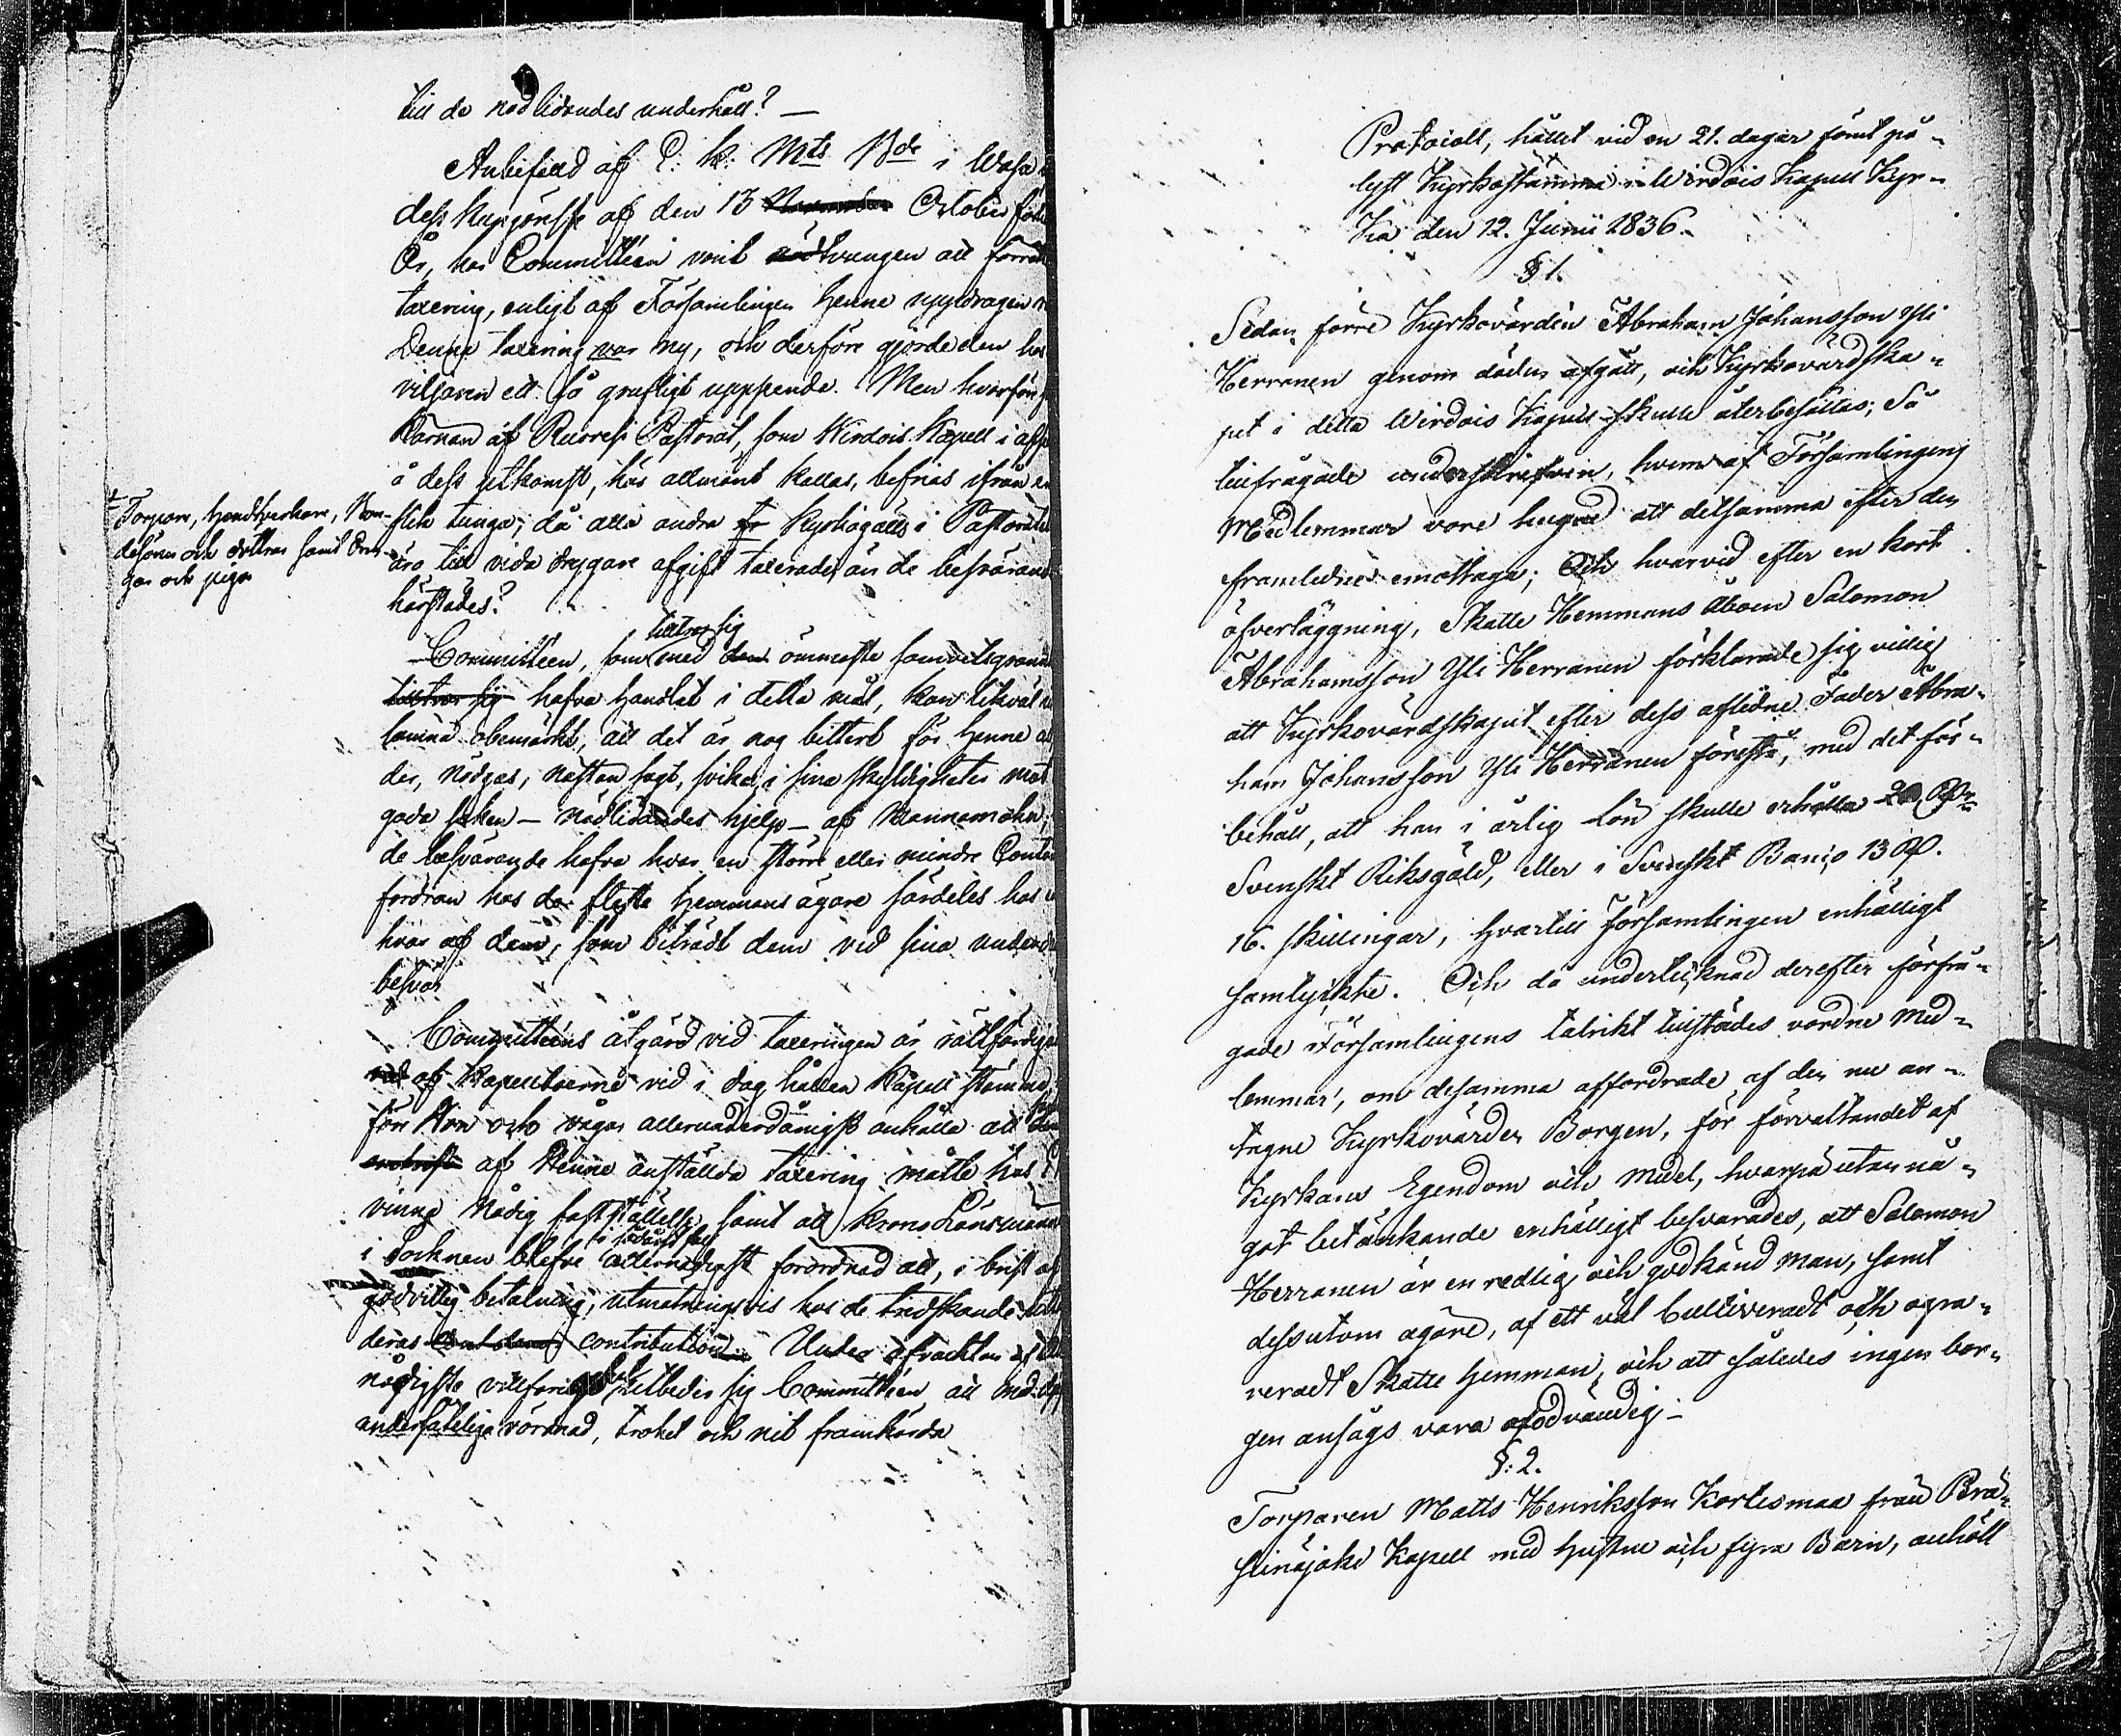 till de nödlidandes underhåll? —
Anbefald af E: K: Mts Bde i Wasa
dess kungörelse af den 13 October
År, har Committéen varit nödtvungen att
taxering, enligt af Församlingen Henne uppdragen
Denna taxering var ny, och derföre gjorde den
ett så grufligt uppseende. Men hvarföre
Kärnan af Ruovesi Pastorat, som Wirdois Kapell i
å dess utkomst, hos allmänt kallas, befrias ifrån
slik tunga; då alla andra Kyrkogälls i
äro till vida drygare afgift taxerade än de
härstädes?
† Torpare, Handtverkare, Bon-
desöner och döttrar samt Drän-
gar och pigor
tilltror sig
Committéen, som med ömmaste
tilltror sig hafva handlat i detta mål, kan likväl
lemna obemärkt, att det är nog bittert för Henne
der, nödgas, nästan sagt, svika i sina skyldigheter mot
goda saken — nödlidandes hjelp — af Mannamohn,
de besvärande hafva hvar en större eller mindre
fordran hos de fleste Hemmans ägare särdeles hos
hvar af dem, som biträdt dem vid sina
besvär
Committéens åtgärd vid taxeringen är
af Kapellboerne vid i dag hållen Kapell stämma,
för Hon och vågar allerunderdånigst anhålla att
af Henne anställda taxering måtte hos
vinna Nådig fastställelse, samt att Krono Länsman
i sådant fall
i Socknen blefve allernådigst förordnad att, i brist af
godvillig betalning, utmätningsvis hos de tredskande
deras contribution. Under afvacktan af
nådigste villfarighet utbeder sig Committéen att med
undersåtelig vördnad, trohet och nit framhärda
Protocoll, hållet vid en 21. dagar förut på-
lyst Kyrkostämma i Wirdois Kapell Kyr-
ka den 12. Junii 1836.
§ 1.
Sedan förre Kyrkovärden Abraham Johansson Yli
Herranen genom döden afgått, och Kyrkovärdska-
pet i detta Wirdois Kapell skulle återbesättas; Så
tillfrågade underskrefven, hvem af Församlingens
Medlemmar vore hugad att detsamma efter den
framledne emottaga; Och hvarvid efter en kort
öfverläggning, Skatte Hemmans Åboen Salomon
Abrahamsson Yli Herranen förklarade sig villig
att Kyrkovärdskapet efter dess afledne Fader Abra-
ham Johansson Yli Herranen förestå, med det för-
behåll, att han i årlig lön skulle erhålla 20 Rdr
Svenskt Riksgäld, eller i Svenskt Banco 13 Rd.
16. skillingar, hvartill Församlingen enhälligt
samtyckte. Och då undertecknad derefter förfrå-
gade Församlingens talrikt tillstädes vordne Med-
lemmar, om desamma affordrade af den nu an-
tagne Kyrkovärden Borgen, för förvaltandet af
Kyrkans Egendom och Medel, hvarpå utan nå-
got betänkande enhälligt besvarades, att Salomon
Herranen är en redlig och godkänd man, samt
dessutom ägare, af ett väl cultiveradt och ope-
reradt Skatte Hemman, och att således ingen bor-
gen ansågs vara nödvändig. —
§: 2.
Torparen Matts Henriksson Kortesmaa från Perä-
seinäjoki Kapell med Hustru och fyra Barn, anhöll